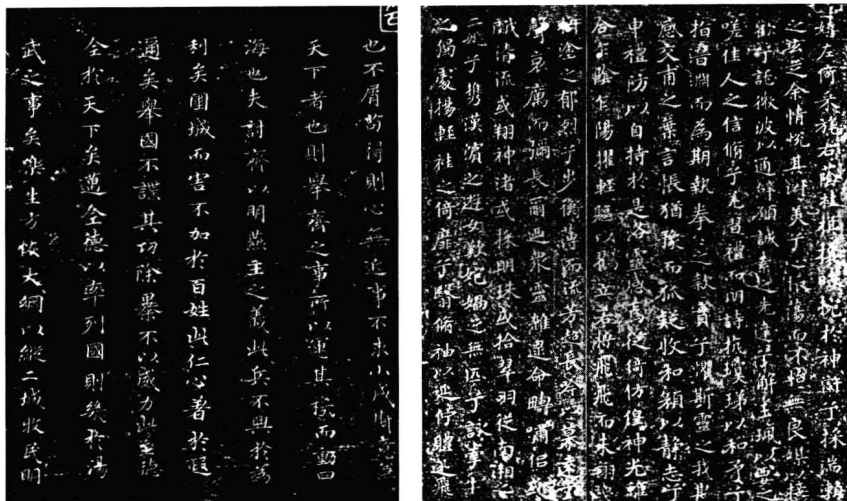 也不屑苟得則心無近事不求小成斯意兼
天下者也則舉齊之事所以運其機而動四
海也夫討齊以明燕主之義此兵不興於為
利矣圍城而害不加於百姓此仁心著於遐
邇矣舉國不謀其功除暴不以威力此至德
全於天下矣邁全德以率列國則幾於湯
武之事矣樂生方恢大綱以縱二城牧民明
嬉左倚采旄右蔭桂旗攘皓腕於神滸兮採湍瀨
之玄芝余情悅其淑美兮心振蕩而不怡無良媒以接
歡兮託微波以通辭願誠素之先達兮解玉珮以要之
嗟佳人之信脩兮羌習禮而明詩抗瓊珶以和予兮
指潛淵而為期執眷眷之款實兮懼斯靈之我欺
感交甫之棄言悵猶豫而狐疑收和顏以靜志兮
申禮防以自持於是洛靈感焉徙倚傍徨神光離
合乍陰乍陽擢輕軀以鶴立若將飛而未翔踐
椒塗之郁烈兮步蘅薄而流芳超長吟以慕遠兮
聲哀厲而彌長爾乃眾靈雜遝命疇嘯侶或
戲清流或翔神渚或採明珠或拾翠羽從南湘之
二妃兮攜漢濱之遊女歎匏媧之無匹兮詠牽牛
之獨處揚輕袿之倚靡兮翳脩袖以延佇體迅飛